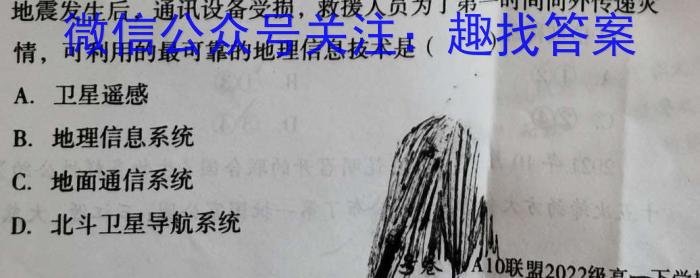 地震发生后，通讯设备受损，救援人员为了第一时间向外传递灾
微信公众号关注：趣找答案
情，可利用的最可靠的地理信息技术是（ ）
A. 卫星遥感
B. 地理信息系统
C. 地面通信系统
D. 北斗卫星导航系统
A10联盟2022级高一下学